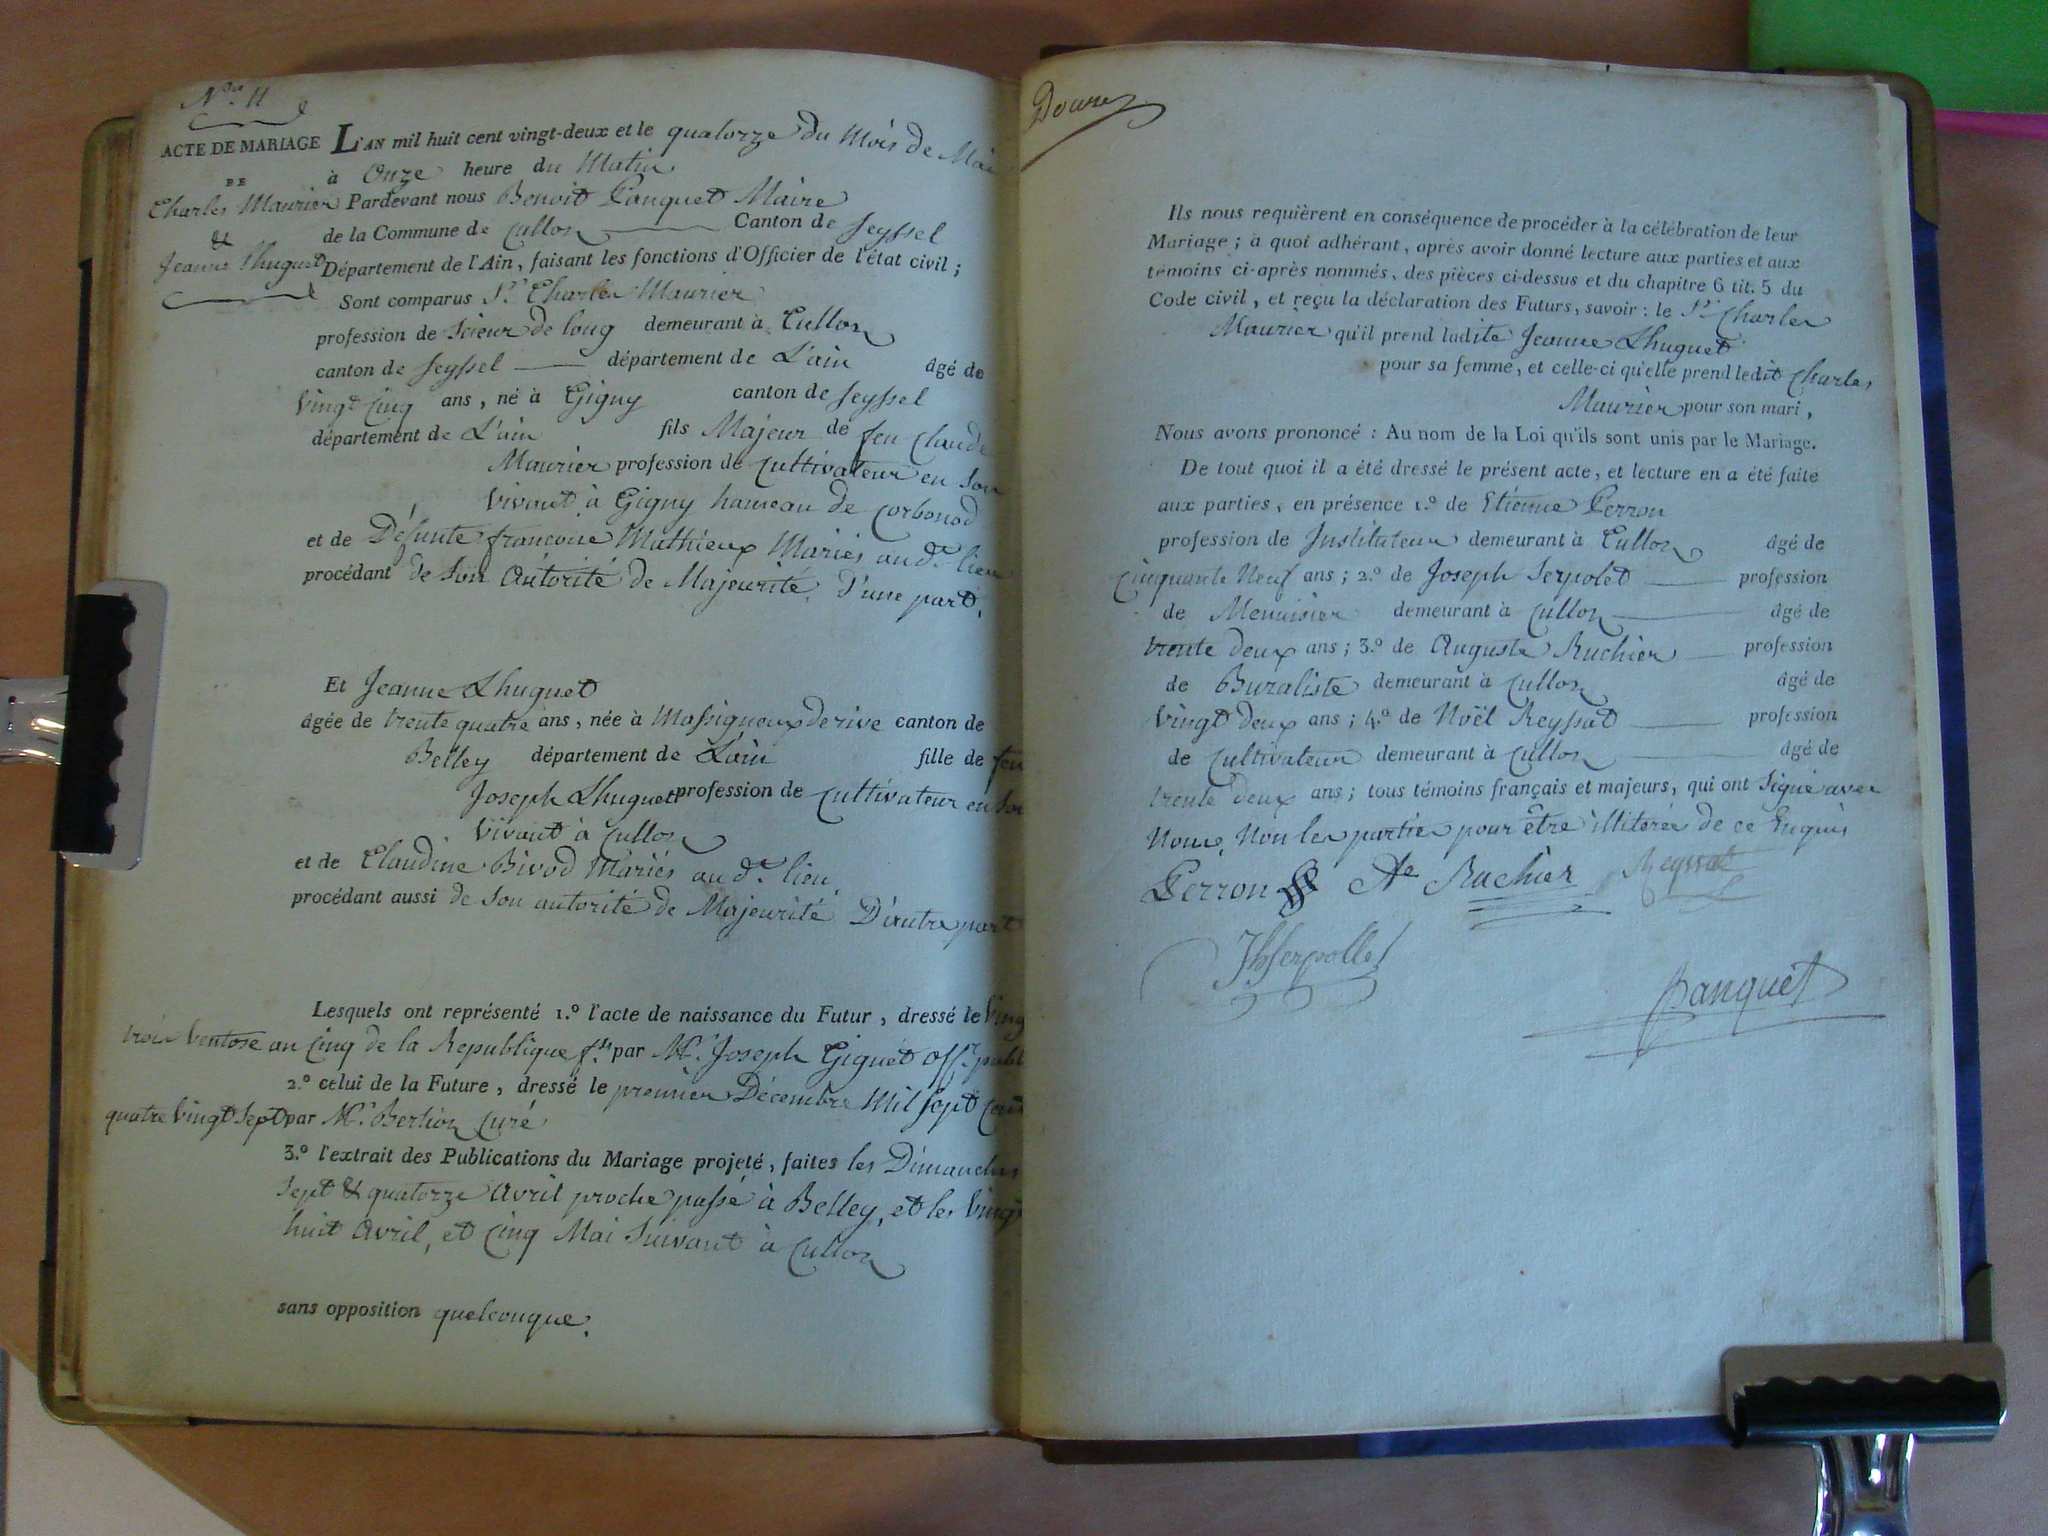 N.ro 11
ACTE DE MARIAGE
DE
Charles Maurier
&
Jeanne Lhuguet
L'AN mil huit cent vingt-deux et le quatorze du Mois de Mai
à Onze heure du Matin
Pardevant nous Benoit Panquet Maire
de la Commune de Culloz Canton de Seyssel
Département de l'Ain, faisant les fonctions d'Officier de l'état civil ;
Sont comparus Sr. Charles Maurier
profession de Scieur de long demeurant à Culloz
canton de Seyssel département de L'ain âgé de
vingt cinq ans, né à Gigny canton de Seyssel
département de L'ain fils Majeur de feu Claude
Maurier profession de Cultivateur en Son
vivant à Gigny hameau de Corbonod
et de Défunte francoise Mathieux Mariés au dt. lieu
procédant de Son Autorité de Majeurité, D'une part.
Et Jeanne Lhuguet
âgée de trente quatre ans, née à Massigneux de rive canton de
Belley département de L'ain fille de feu
Joseph Lhuguet profession de Cultivateur en Son
Vivant à Culloz
et de Claudine Bivod Mariés au dt. lieu
procédant aussi de Son autorité de Majeurité D'autre part
Lesquels ont représenté 1.º l'acte de naissance du Futur, dressé le Vingt
trois Ventose an Cinq de la Republique fse. par Mr. Joseph Giguet offr. publ
2.º celui de la Future, dressé le premier Décembre Mil Sept Cent
quatre Vingt Sept par Mr. Berlioz Curé
3.º l'extrait des Publications du Mariage projeté, faites les Dimanches
Sept & quatorze Avril proche passé à Belley, et les Vingt
huit Avril, et Cinq Mai Suivant à Culloz
sans opposition quelconque.
Douze
Ils nous requièrent en conséquence de procéder à la célébration de leur
Mariage ; à quoi adhérant, après avoir donné lecture aux parties et aux
témoins ci-après nommés, des pièces ci-dessus et du chapitre 6 tit. 5 du
Code civil, et reçu la déclaration des Futurs, savoir : le Sr. Charles
Maurier qu'il prend ladite Jeanne Lhuguet
pour sa femme, et celle-ci qu'elle prend ledit Charles
Maurier pour son mari,
Nous avons prononcé : Au nom de la Loi qu'ils sont unis par le Mariage.
De tout quoi il a été dressé le présent acte, et lecture en a été faite
aux parties, en présence 1.º de Etienne Perron
profession de Instituteur demeurant à Culloz âgé de
Cinquante Neuf ans ; 2.º de Joseph Serpolet profession
de Menuisier demeurant à Culloz âgé de
trente deux ans ; 3.º de Auguste Ruchier profession
de Buraliste demeurant à Culloz âgé de
Vingt deux ans ; 4.º de Noël Reyssat profession
de Cultivateur demeurant à Culloz âgé de
trente deux ans ; tous témoins français et majeurs, qui ont Signé avec
Nous, Non les parties pour être illiterées de ce Enquis
Perron Ate Ruchier Reyssat
Jh Serpollet
Panquet